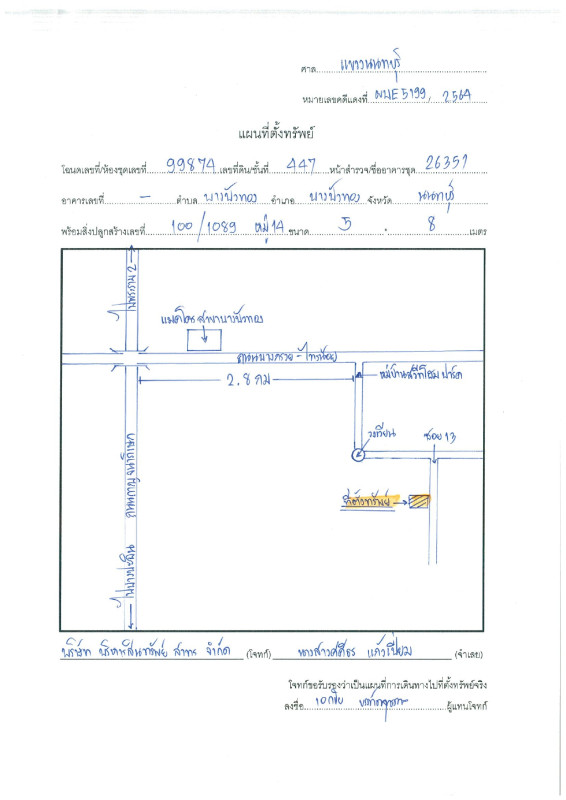 ศาล แขวงนนทบุรี
หมายเลขคดีแดงที่ ผบE5199, 2564
แผนที่ตั้งทรัพย์
โฉนดเลขที่/ห้องชุดเลขที่ 99874 เลขที่ดิน/ชั้นที่ 447 หน้าสำรวจ/ชื่ออาคารชุด 26351
อาคารเลขที่ - ตำบล บางบัวทอง อำเภอ บางบัวทอง จังหวัด นนทบุรี
พร้อมสิ่งปลูกสร้างเลขที่ 100/1089 หมู่ 14 ขนาด 5 . 8 เมตร
ไปพระราม 2
แมคโคร สาขาบางบัวทอง
ถนนบางกรวย - ไทรน้อย
2.8 กม
หมู่บ้าน ปาร์ค
วงเวียน
ซอย 13
ถนนกาญจนาภิเษก
ที่ตั้งทรัพย์
ไปบางปะอิน
บริษัท บริหารสินทรัพย์ สาทร จำกัด (โจทก์) นางสาว (จำเลย)
โจทก์ขอรับรองว่าเป็นแผนที่การเดินทางไปที่ตั้งทรัพย์จริง
ลงชื่อ ผู้แทนโจทก์